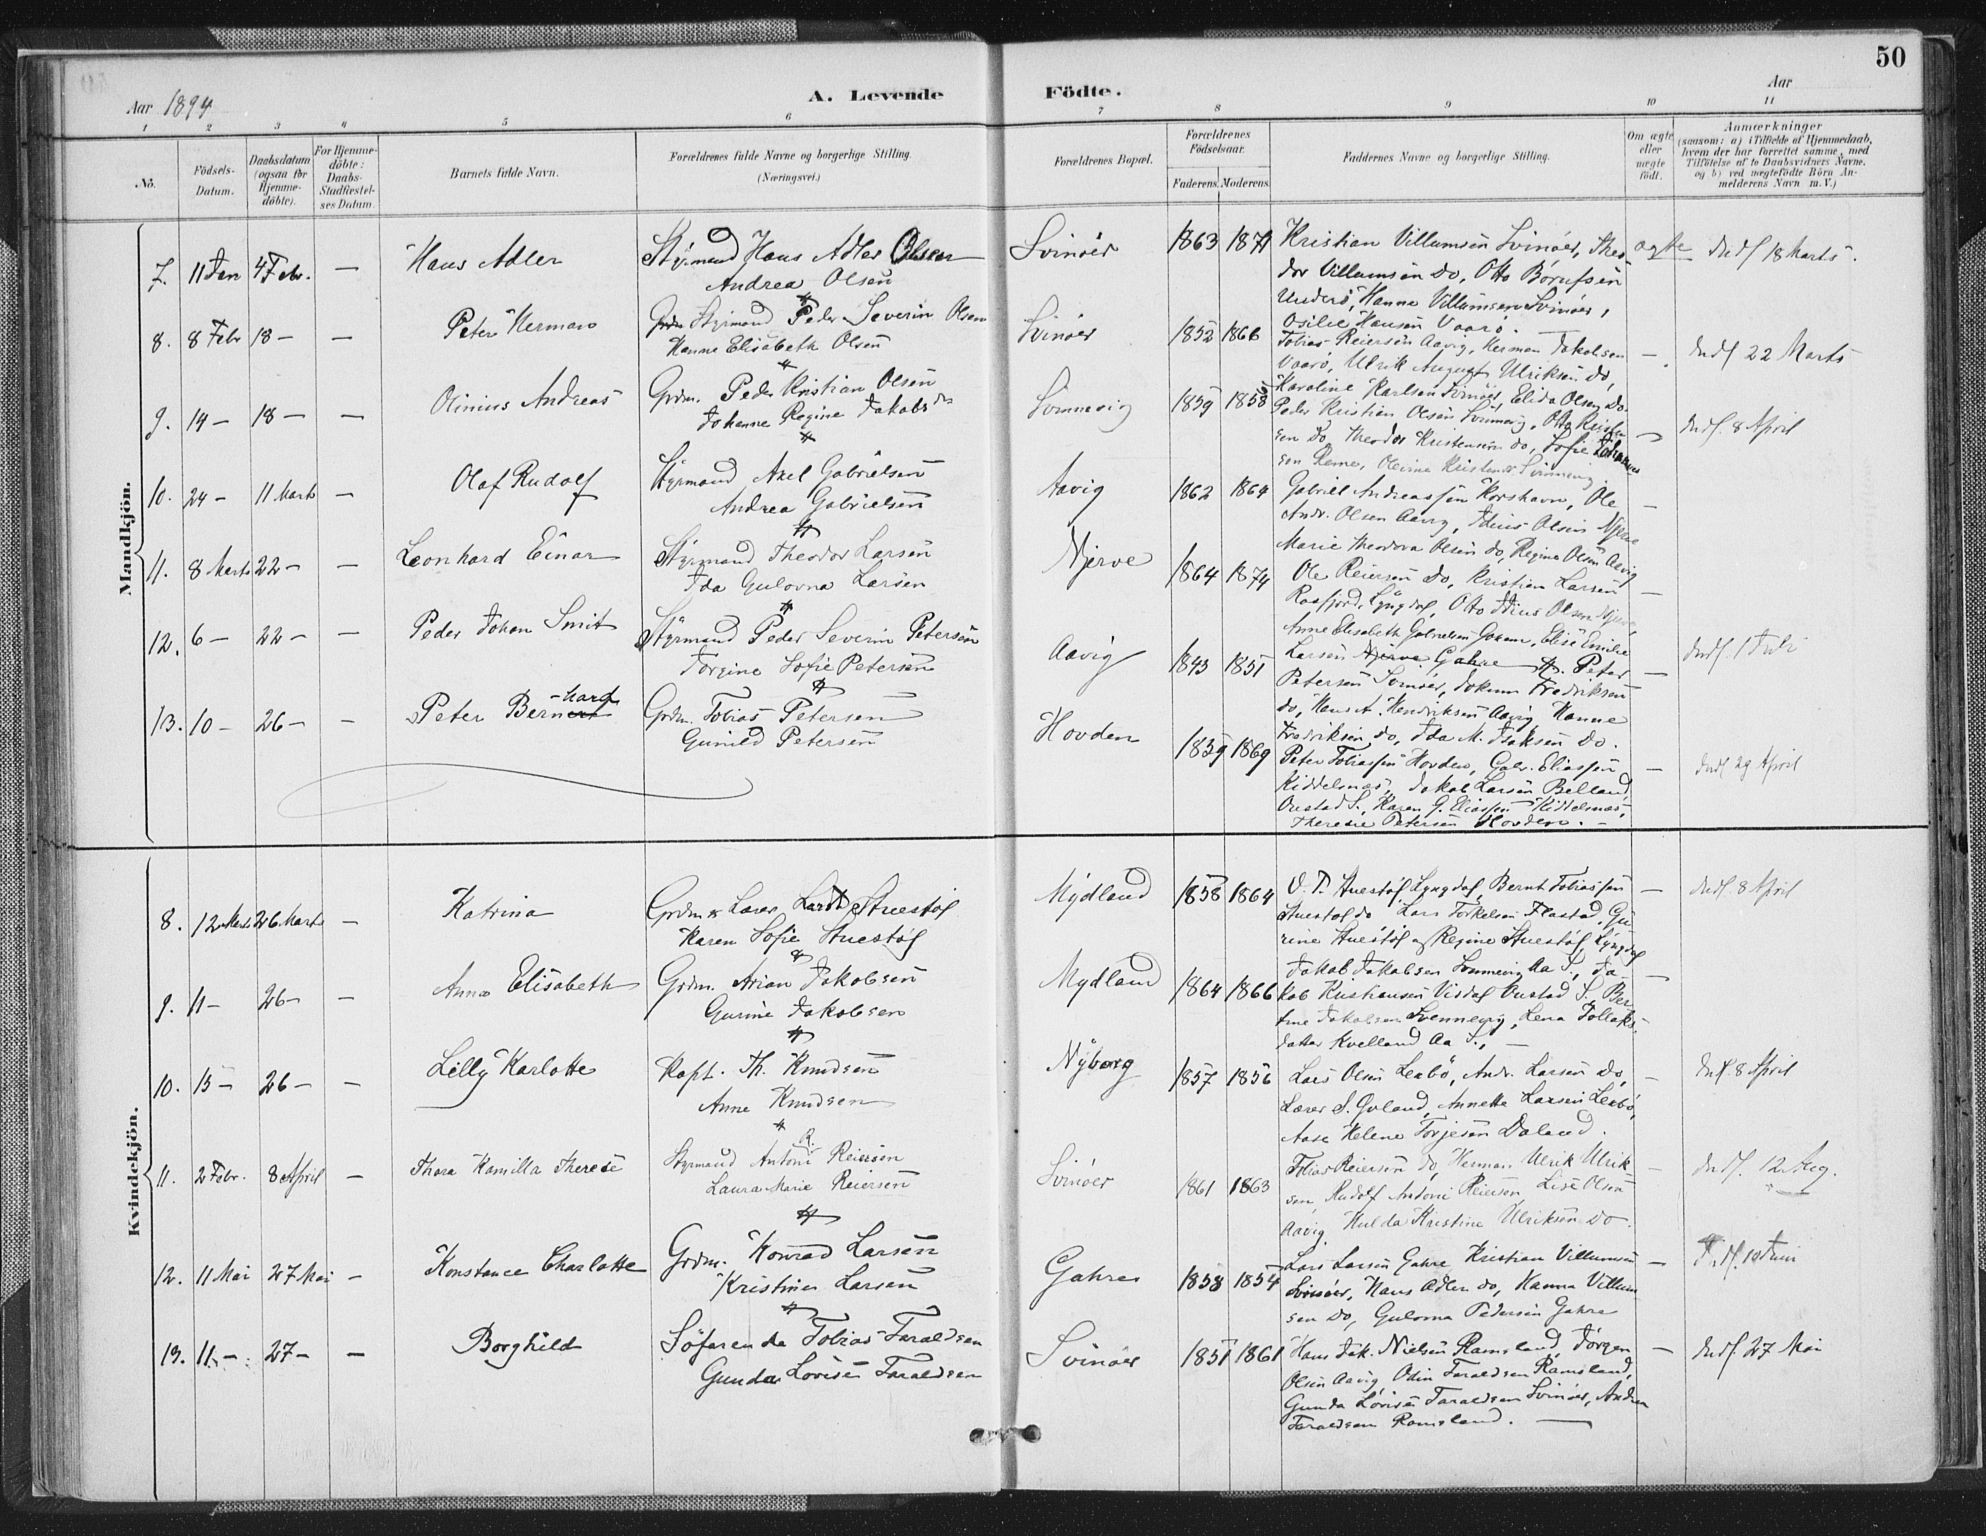 50
Aar 1894
A. Levende Födte.
Aar
1 2 3 4 5 6 7 8 9 10 11
No.
Födsels-Datum.
Daabsdatum (ogsaa for Hjemmedöbte).
For Hjemmedöbte: Daabs-Stadfæstelses Datum.
Barnets fulde Navn.
Forældrenes fulde Navne og borgerlige Stilling. (Næringsvei.)
Forældrenes Bopæl.
Forældrenes Födselsaar.
Faderens. Moderens.
Faddernes Navne og borgerlige Stilling.
Om ægte eller uægte födt.
Anmærkninger
(saasom: a) i Tilfælde af Hjemmedaab, hvem der har forrettet samme, med Tilföielse af to Daabsvidners Navne, og b) ved uægtefödte Börn Anmelderens Navn m. V.)
Mandkjön.
7. 11 Jan 4 Febr. — Hans Adler
Styrmand Hans Adler Olsen
Andrea Olsen
Svinöer 1863 1871
Kristian Villumsen Svinöer, Theo
dor Villumsen do, Otto Börufsen
Underö, Hanne Villumsen Svinöer,
Osilie Hansen Vaarö.
ægte
Indf 18 Marts.
8. 8 Febr 18 — — Peter Herman
Styrmand Peder Severin Olsen
Hanne Elisabeth Olsen
Svinöer 1852 1866
Tobias Reiersen Aavig, Herman Jakobsen
Vaarö, Ulrik August Ulriksen do,
Karoline Karlsen Svinöer, Elida Olsen do.
— Indf 22 Marts
9. 14 — 18 — — Olinius Andreas
Grdm. Peder Kristian Olsen
Johanne Regine Jakobsdr
Svinnevig 1859 1858
Peder Kristian Olsen Svinnevig, Otto Kristen
sen do, Theodor Kristensen do, Sofie
sen Reme, Olevine Kristens Svinnevig
— Indf. 8 April
10. 24 — 11 Marts — Olaf Rudolf
Styrmand Axel Gabrielsen
Andrea Gabrielsen
Aavig 1862 1864
Gabriel Andreassen Korshavn, Ole
Andr. Olsen Aavig, Idius Olsen Njerve
Marie Theodora Olsen do, Regine Olsen Aavig
—
11. 8 Marts 22 — — Leonhard Einar
Styrmand Theodor Larsen
Ida Gulovna Larsen
Njerve 1864 1874
Ole Reiersen do, Kristian Larsen
Rosfjord, Lyngdal, Otto Idius Olsen Njerve,
Anne Elisabeth Gabrielsen Elise Emilie
Larsen Njerve Gahre
—
12. 6 — 22 — — Peder Johan Smit
Styrmand Peder Severin Petersen
Torgine Sofie Petersen
Aavig 1843 1851
Peter
Petersen Svinöer, Jokum Fredriksen
do, Hans A. Hendriksen Aavig Hanne
Fredriksen do, Ida M. Isaksen do.
— Indf. 1 Juli
13. 10 — 26 — — Peter Bernhard
Grdm. Tobias Petersen
Gunild Petersen
Hovden 1859 1869
Peter Tobiassen Hovden, Gabr. Eliassen
Kiddelsnæs, Jakob Larsen Belland
Øvstad S., Karen G. Eliassen Kiddelsnæs,
Theresie Petersen Hovden. —
— Indf 29 April
Kvindekjön.
8. 12 Marts 26 Marts — Katrina
Karen Sofie Stuestöl
Mydland 1858 1864
O. T. Stuestöl Lyngdal, Bernt Tobiassen
Stuestöl do Lars Torkelsen Flastad, Gu
rine Stuestöl og Regine Stuestöl, Lyngdal
— Indf. 8 April
9. 11 — 26 — — Anna Elisabeth
Grdm. Arian Jakobsen
Gurine Jakobsen
Mydland 1864 1866
Jakob Jakobsen Svinnevig Aa S., Ja
kob Kristiansen Visdal Øvstad S., Ber
tine Jakobsen Svennevig, Lena Tollaks
datter Kvelland Aa S., —
—
10. 15 — 26 — — Lilly Karlotte
Kapt. Th. Knudsen
Anne Knudsen
Nyborg 1857 1856
Lars Olsen Lexbö, Andr. Larsen do,
Lærer S. Guland, Annette Larsen Lexbö,
Aase Helene Torjesen Daland.
— Indf 8 April
11. 2 Febr. 8 April — Thora Kamilla Therese
Styrmand Antoni R. Reiersen
Laura Marie Reiersen
Svinöer 1861 1863
Tobias Reiersen do, Herman Ulrik Ulrik
sen, Rudolf Antoni Reiersen, Lise Olsen
Aavig, Hulda Kristine Ulriksen do.
— Indf. 12 Aug.
12. 11 Mai 27 Mai — Konstance Charlotte
Grdm. Konrad Larsen
Kristine Larsen
Gahre 1858 1854
Lars Larsen Gahre Kristian Villumsen
Svinöer, Hans Adler do, Hanna Villum
sen do, Gulovna Pedersen Gahre
— Indf. 10 Juni
13. 11 — 27 — — Borghild
Söfarende Tobias Taraldsen
Gunda Lovise Taraldsen
Svinöer 1851 1861
Hans Jak. Nielsen Ramsland, Jörgen
Olsen Aavig Odin Taraldsen Ramsland,
Gunda Lovise Taraldsen Svinöer, Andrea
Taraldsen Ramsland. —
— Indf 27 Mai